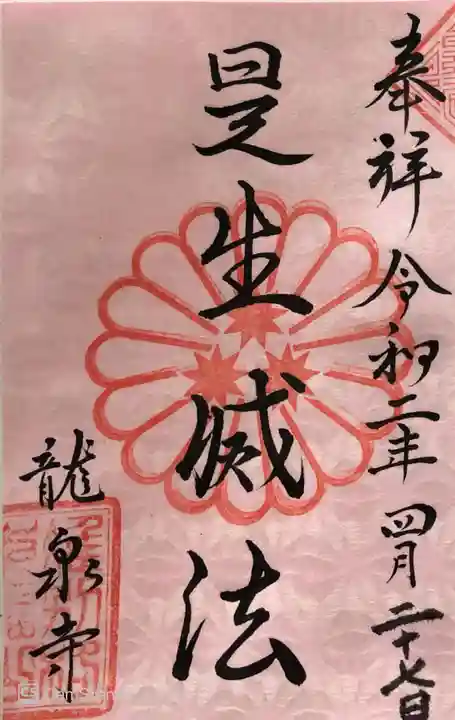 奉拝 令和二年 四月二十七日
是生滅法
龍泉寺
CamScanner